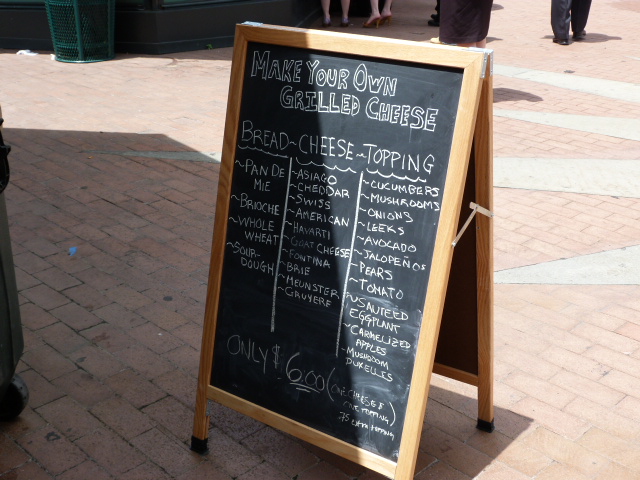 MAKE YOUR OWN
GRILLED CHEESE
BREAD~CHEESE~TOPPING
~PAN DE
MIE
~BRIOCHE
~WHOLE
WHEAT
~SOUR-
DOUGH
~ASIAGO
~CHEDDAR
~SWISS
~AMERICAN
~HAVARTI
~GOAT CHEESE
~FONTINA
~BRIE
~MEUNSTER
~GRUYERE
~CUCUMBERS
~MUSHROOMS
~ONIONS
~LEEKS
~AVOCADO
~JALOPEÑOS
~PEARS
~TOMATO
~SAUTEED
EGGPLANT
~CARMELIZED
APPLES
~MUSHROOM
DUXELLIS
ONLY $6.00 (ONE CHEESE &
ONE TOPPING)
.75 EXTRA TOPPING